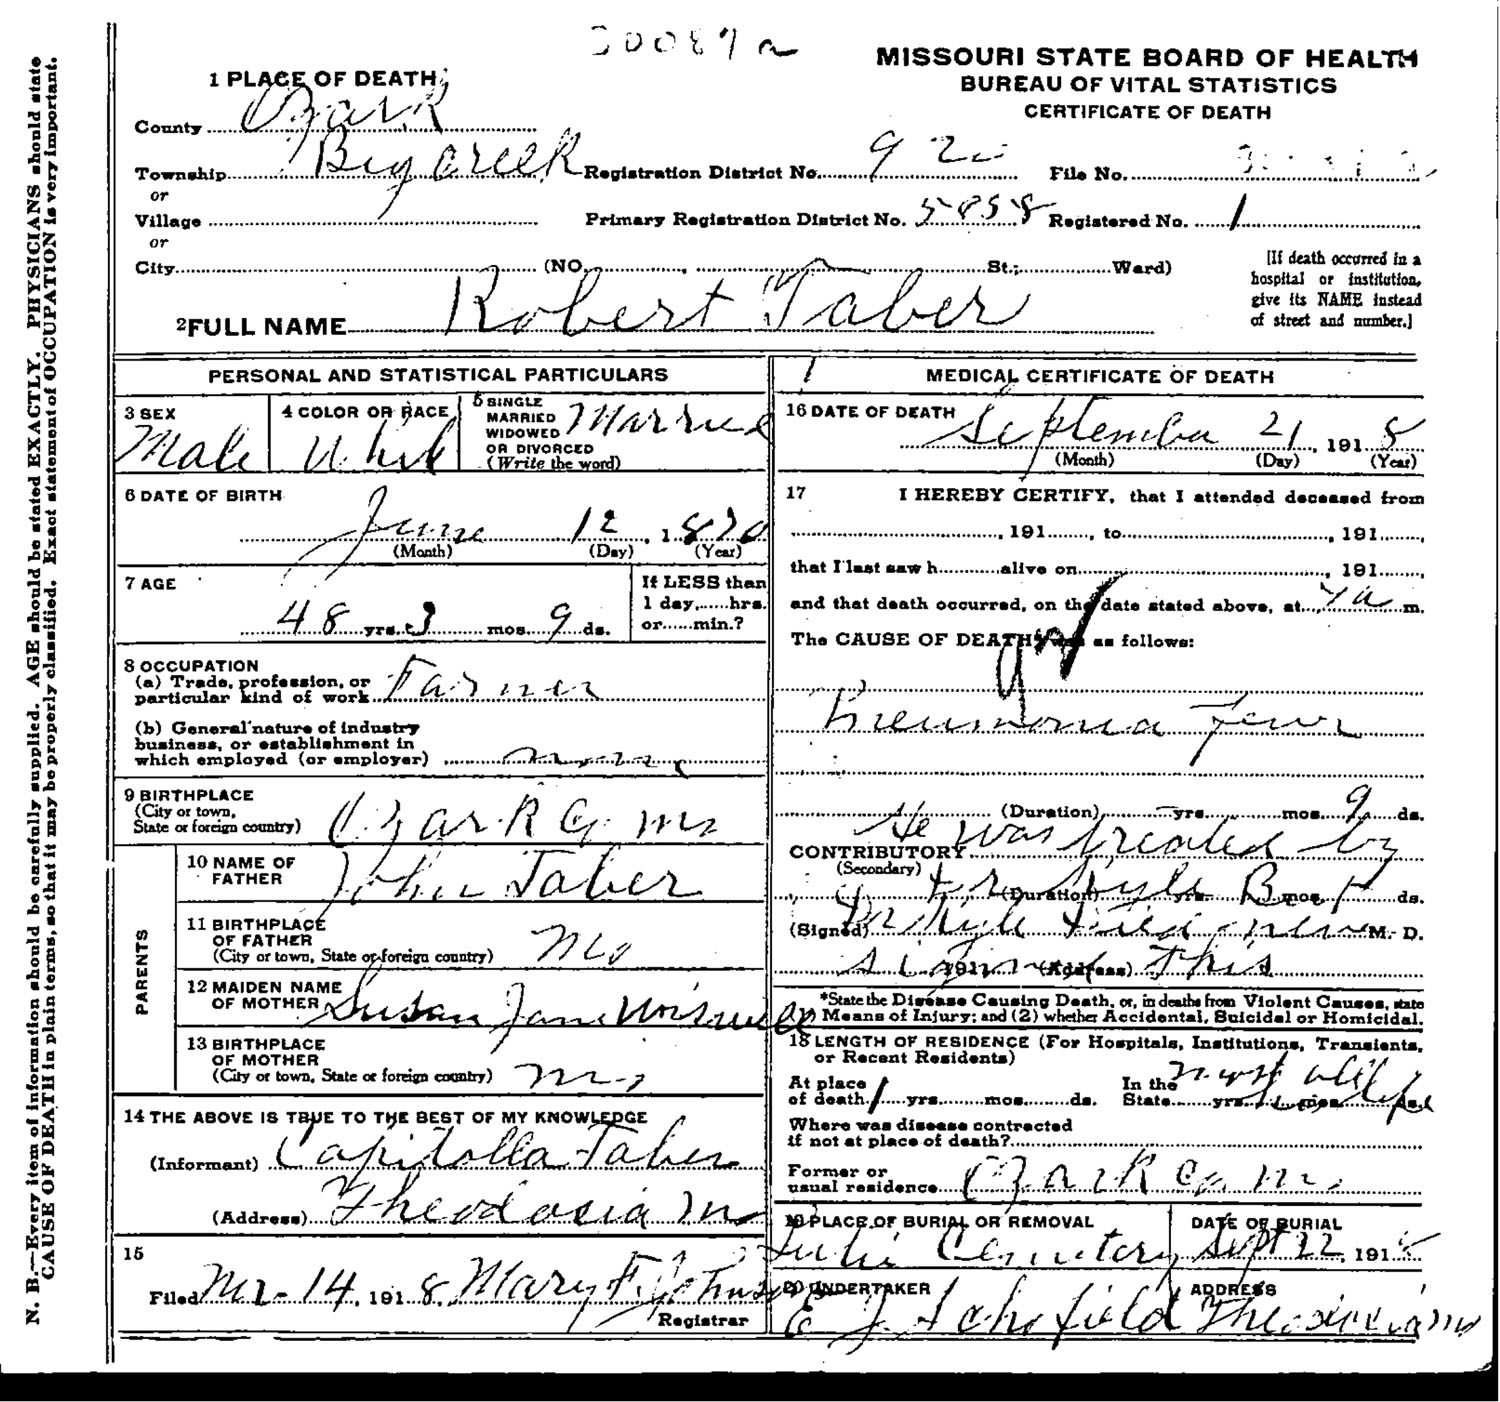 30087a
MISSOURI STATE BOARD OF HEALTH
BUREAU OF VITAL STATISTICS
CERTIFICATE OF DEATH
1 PLACE OF DEATH
County Ozark
Township Big Creek Registration District No. 920 File No.
or
Village Primary Registration District No. 5858 Registered No. 1
or
City (NO. , St.; Ward)
[If death occurred in a hospital or institution, give its NAME instead of street and number.]
2 FULL NAME Robert Taber
PERSONAL AND STATISTICAL PARTICULARS
3 SEX
Male
4 COLOR OR RACE
White
5 SINGLE
MARRIED
WIDOWED
OR DIVORCED
(Write the word)
Married
6 DATE OF BIRTH
June 12, 1870
(Month) (Day) (Year)
7 AGE
48 yrs. 3 mos. 9 ds.
If LESS than
1 day, hrs.
or min.?
8 OCCUPATION
(a) Trade, profession, or
particular kind of work Farmer
(b) General nature of industry
business, or establishment in
which employed (or employer)
9 BIRTHPLACE
(City or town,
State or foreign country) Ozark Co. Mo
PARENTS
10 NAME OF
FATHER John Taber
11 BIRTHPLACE
OF FATHER
(City or town, State or foreign country) Mo
12 MAIDEN NAME
OF MOTHER Susan Jane
13 BIRTHPLACE
OF MOTHER
(City or town, State or foreign country) Mo
14 THE ABOVE IS TRUE TO THE BEST OF MY KNOWLEDGE
(Informant) Capitolla Taber
(Address) Theodosia Mo
15
Filed 14, 1918, Mary F. Johnson
Registrar
MEDICAL CERTIFICATE OF DEATH
16 DATE OF DEATH
September 21, 1918
(Month) (Day) (Year)
17 I HEREBY CERTIFY, that I attended deceased from
, 191 , to , 191 ,
that I last saw h alive on , 191 ,
and that death occurred, on the date stated above, at 7 a m.
The CAUSE OF DEATH* was as follows:
Pneumonia Fever
(Duration) yrs. mos. 9 ds.
He was treated by
CONTRIBUTORY
(Secondary)
(Duration) yrs. mos. ds.
Dr Kyle But
(Signed) Dr Kyle died never M. D.
signed this
191 (Address)
*State the Disease Causing Death, or, in deaths from Violent Causes, state
(1) Means of Injury; and (2) whether Accidental, Suicidal or Homicidal.
18 LENGTH OF RESIDENCE (For Hospitals, Institutions, Transients,
or Recent Residents)
At place
of death yrs. mos. ds.
In the
State yrs. mos. ds.
most all
life
Where was disease contracted
if not at place of death?
Former or
usual residence Ozark Co Mo
19 PLACE OF BURIAL OR REMOVAL
Cemetery
DATE OF BURIAL
Sept 22, 1918
20 UNDERTAKER
E J Schofield
ADDRESS
Theodosia Mo
N. B.—Every item of information should be carefully supplied. AGE should be stated EXACTLY. PHYSICIANS should state
CAUSE OF DEATH in plain terms, so that it may be properly classified. Exact statement of OCCUPATION is very important.